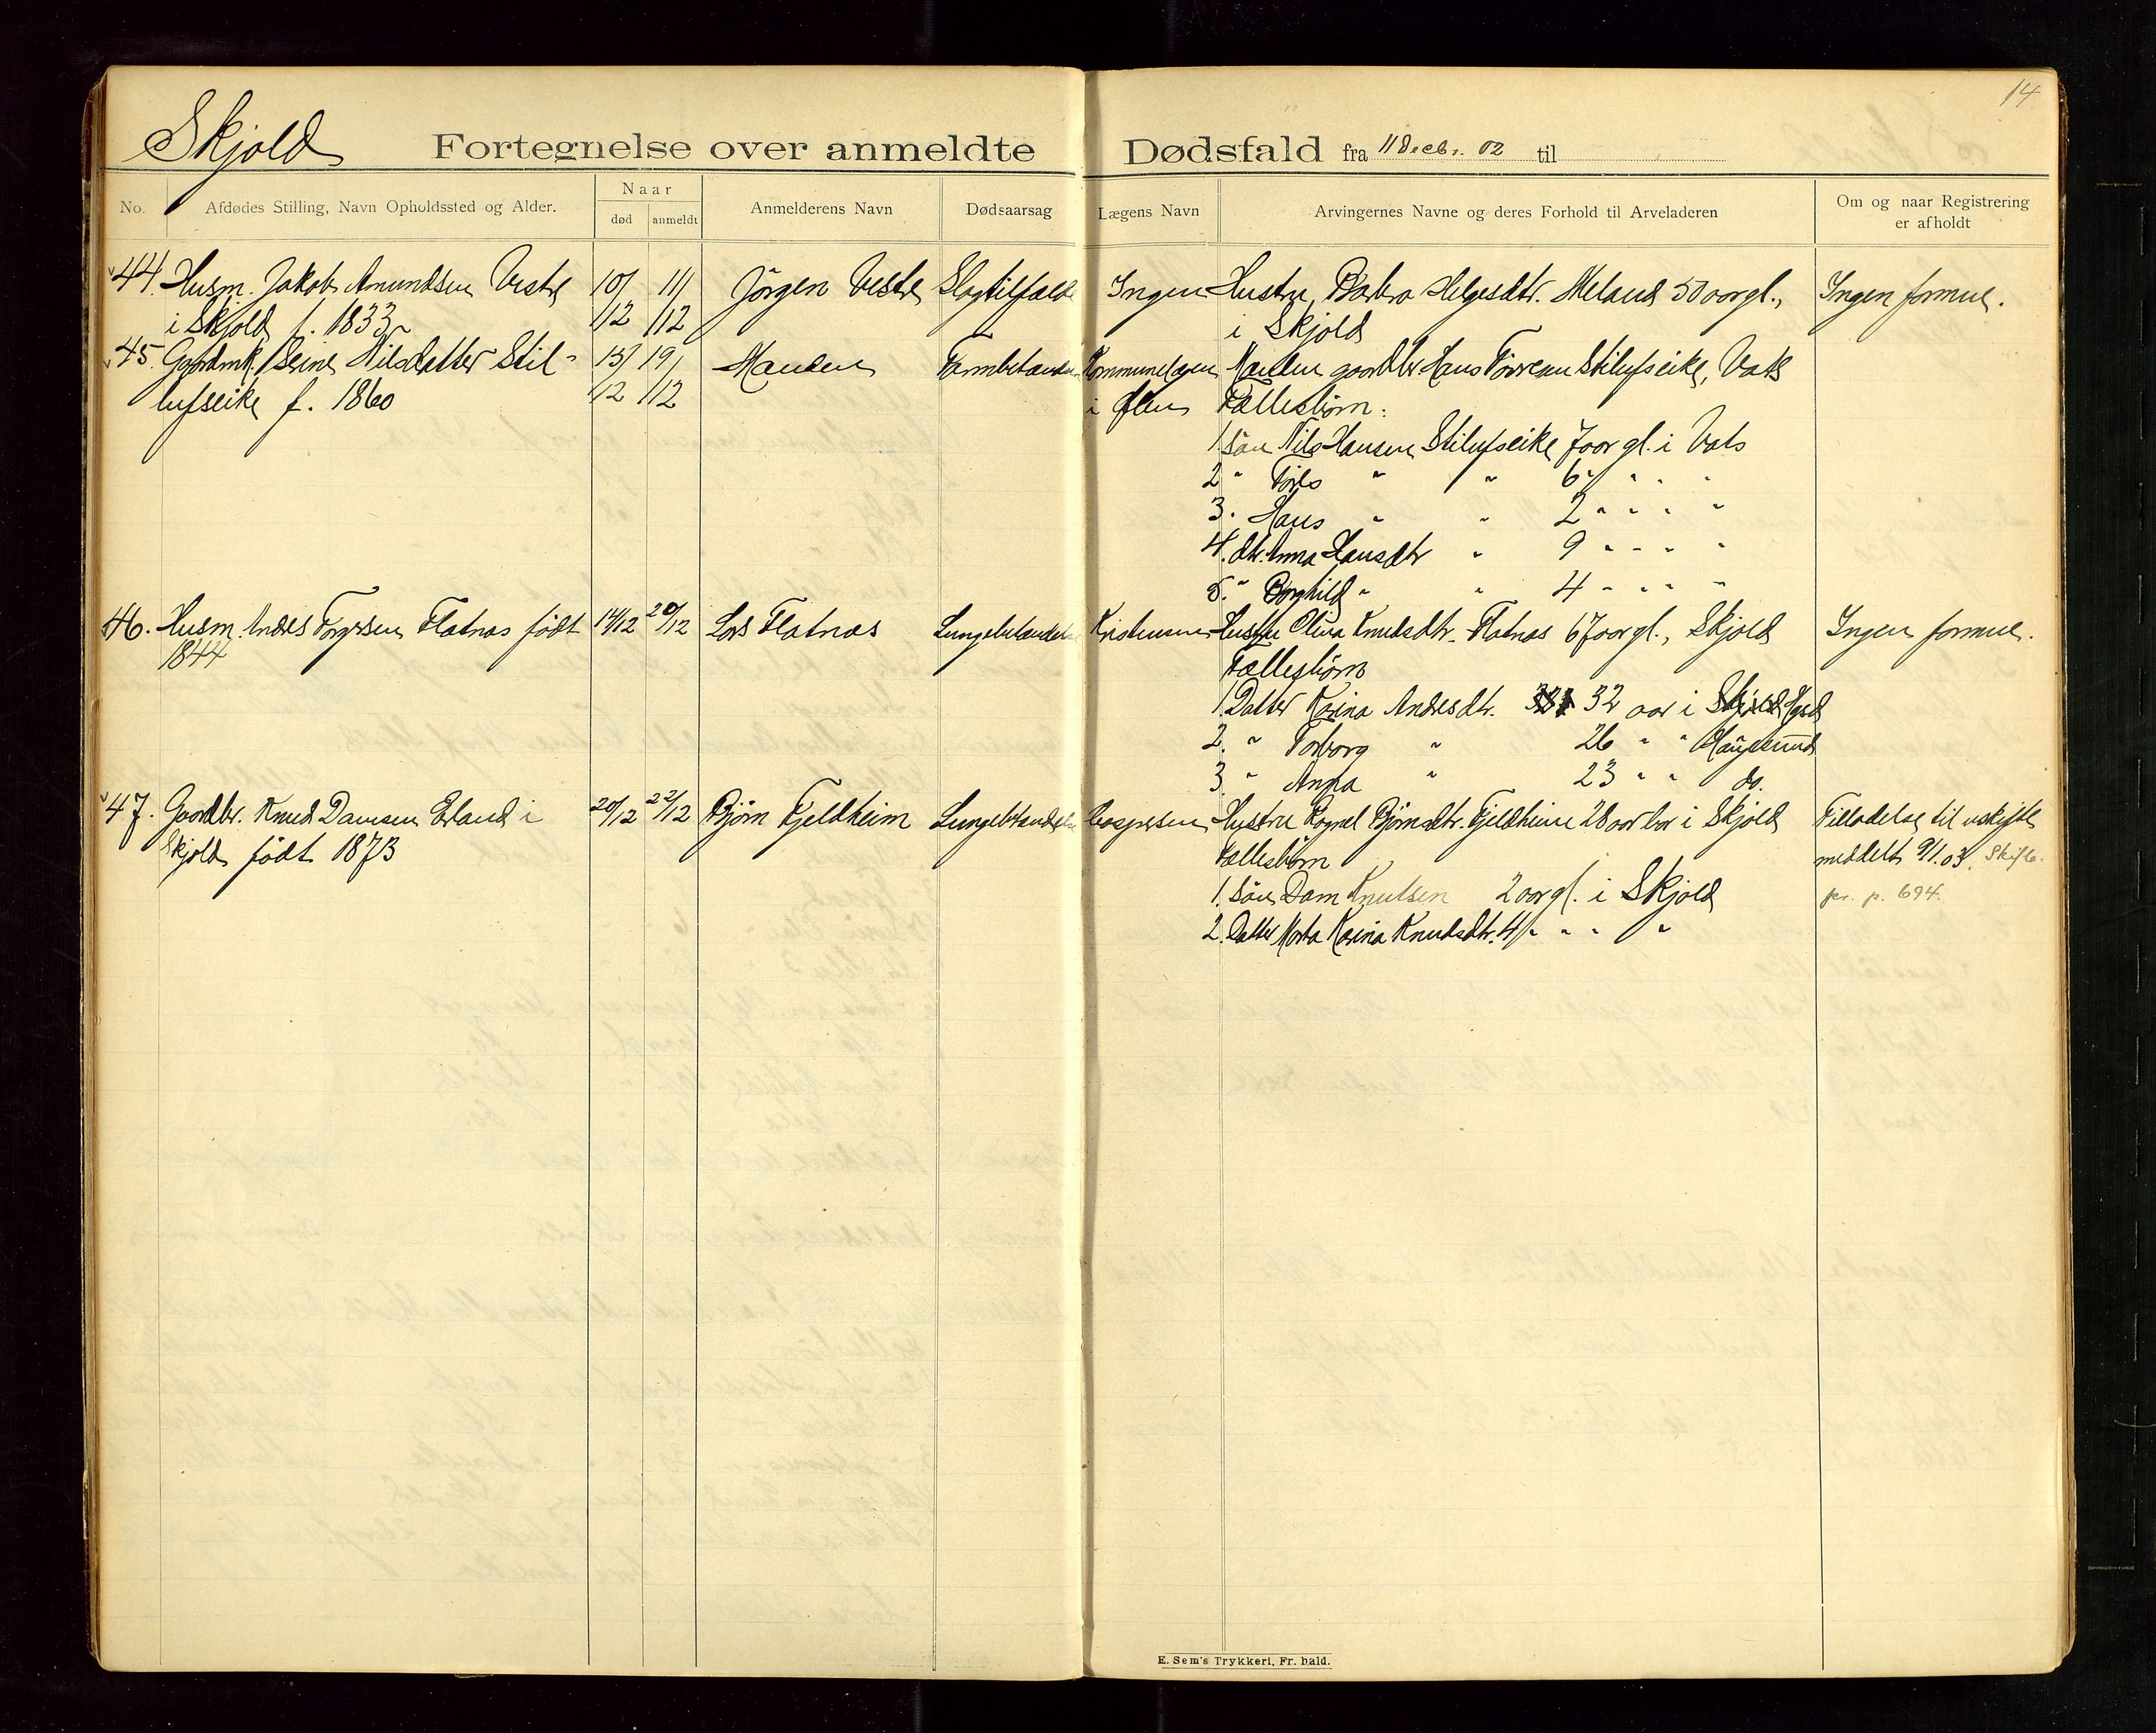 14
Skjold Fortegnelse over anmeldte Dødsfald fra 11 Decbr. 02 til
No. Afdødes Stilling, Navn Opholdssted og Alder. Naar død anmeldt Anmelderens Navn Dødsaarsag Lægens Navn Arvingernes Navne og deres Forhold til Arveladeren Om og naar Registrering er afholdt
44. Husm. Jakob Amundsen Vestre 10/12 11/12 Jörgen Vestre Slagtilfælde Ingen Hustru, Barbra Helgesdtr. Meland 50 aar gl., Ingen formue.
i Skjold f. 1833 i Skjold
45. Gaardmk. Serine Nilsdatter Stil- 13/12 19/12 Manden Kommunelægen Manden gaardbr Hans Stilufseike, Vats
lufseike f. 1860 i Ølen Fællesbörn:
1. Sön Nils Hansen Stilufseike 7 aar gl. i Vats
2 " " " 6 " " "
3. Hans " " 2 " " " "
4. dtr. Anna Hansdtr " 9 " " " "
5. " Borghild " " 4 " " " "
46. Husm. Andres Torgersen Flatnas født 14/12 20/12 Lars Flatnas Lungebetændelse Kristensen Hustru Olina Knudsdtr. Flatnas 67 aar gl., Skjold Ingen formue.
1844 Fællesbörn
1. Datter Karina Andresdtr. 32 aar i Skjold Hgsd
2. " Torborg " 26 " " Haugesund
3 " Anna " 23 " " do.
47. Gaardbr. Knud Damsen Erland i 20/12 22/12 Bjørn Fjeldheim Lungebetændelse Caspersen Hustru Ragnel Bjørnsdtr. Fjeldheim 28 aar bor i Skjold Tilladelse til uskiftet
Skjold født 1873 Fællesbörn meddelt 9/1.03. Skifte-
1. Sön Dam Knutsen 2 aar gl. i Skjold pr. p. 694.
2. Datter Marta Karina Knudsdtr. 4 " " " "
E. Sem's Trykkeri, Fr. hald.